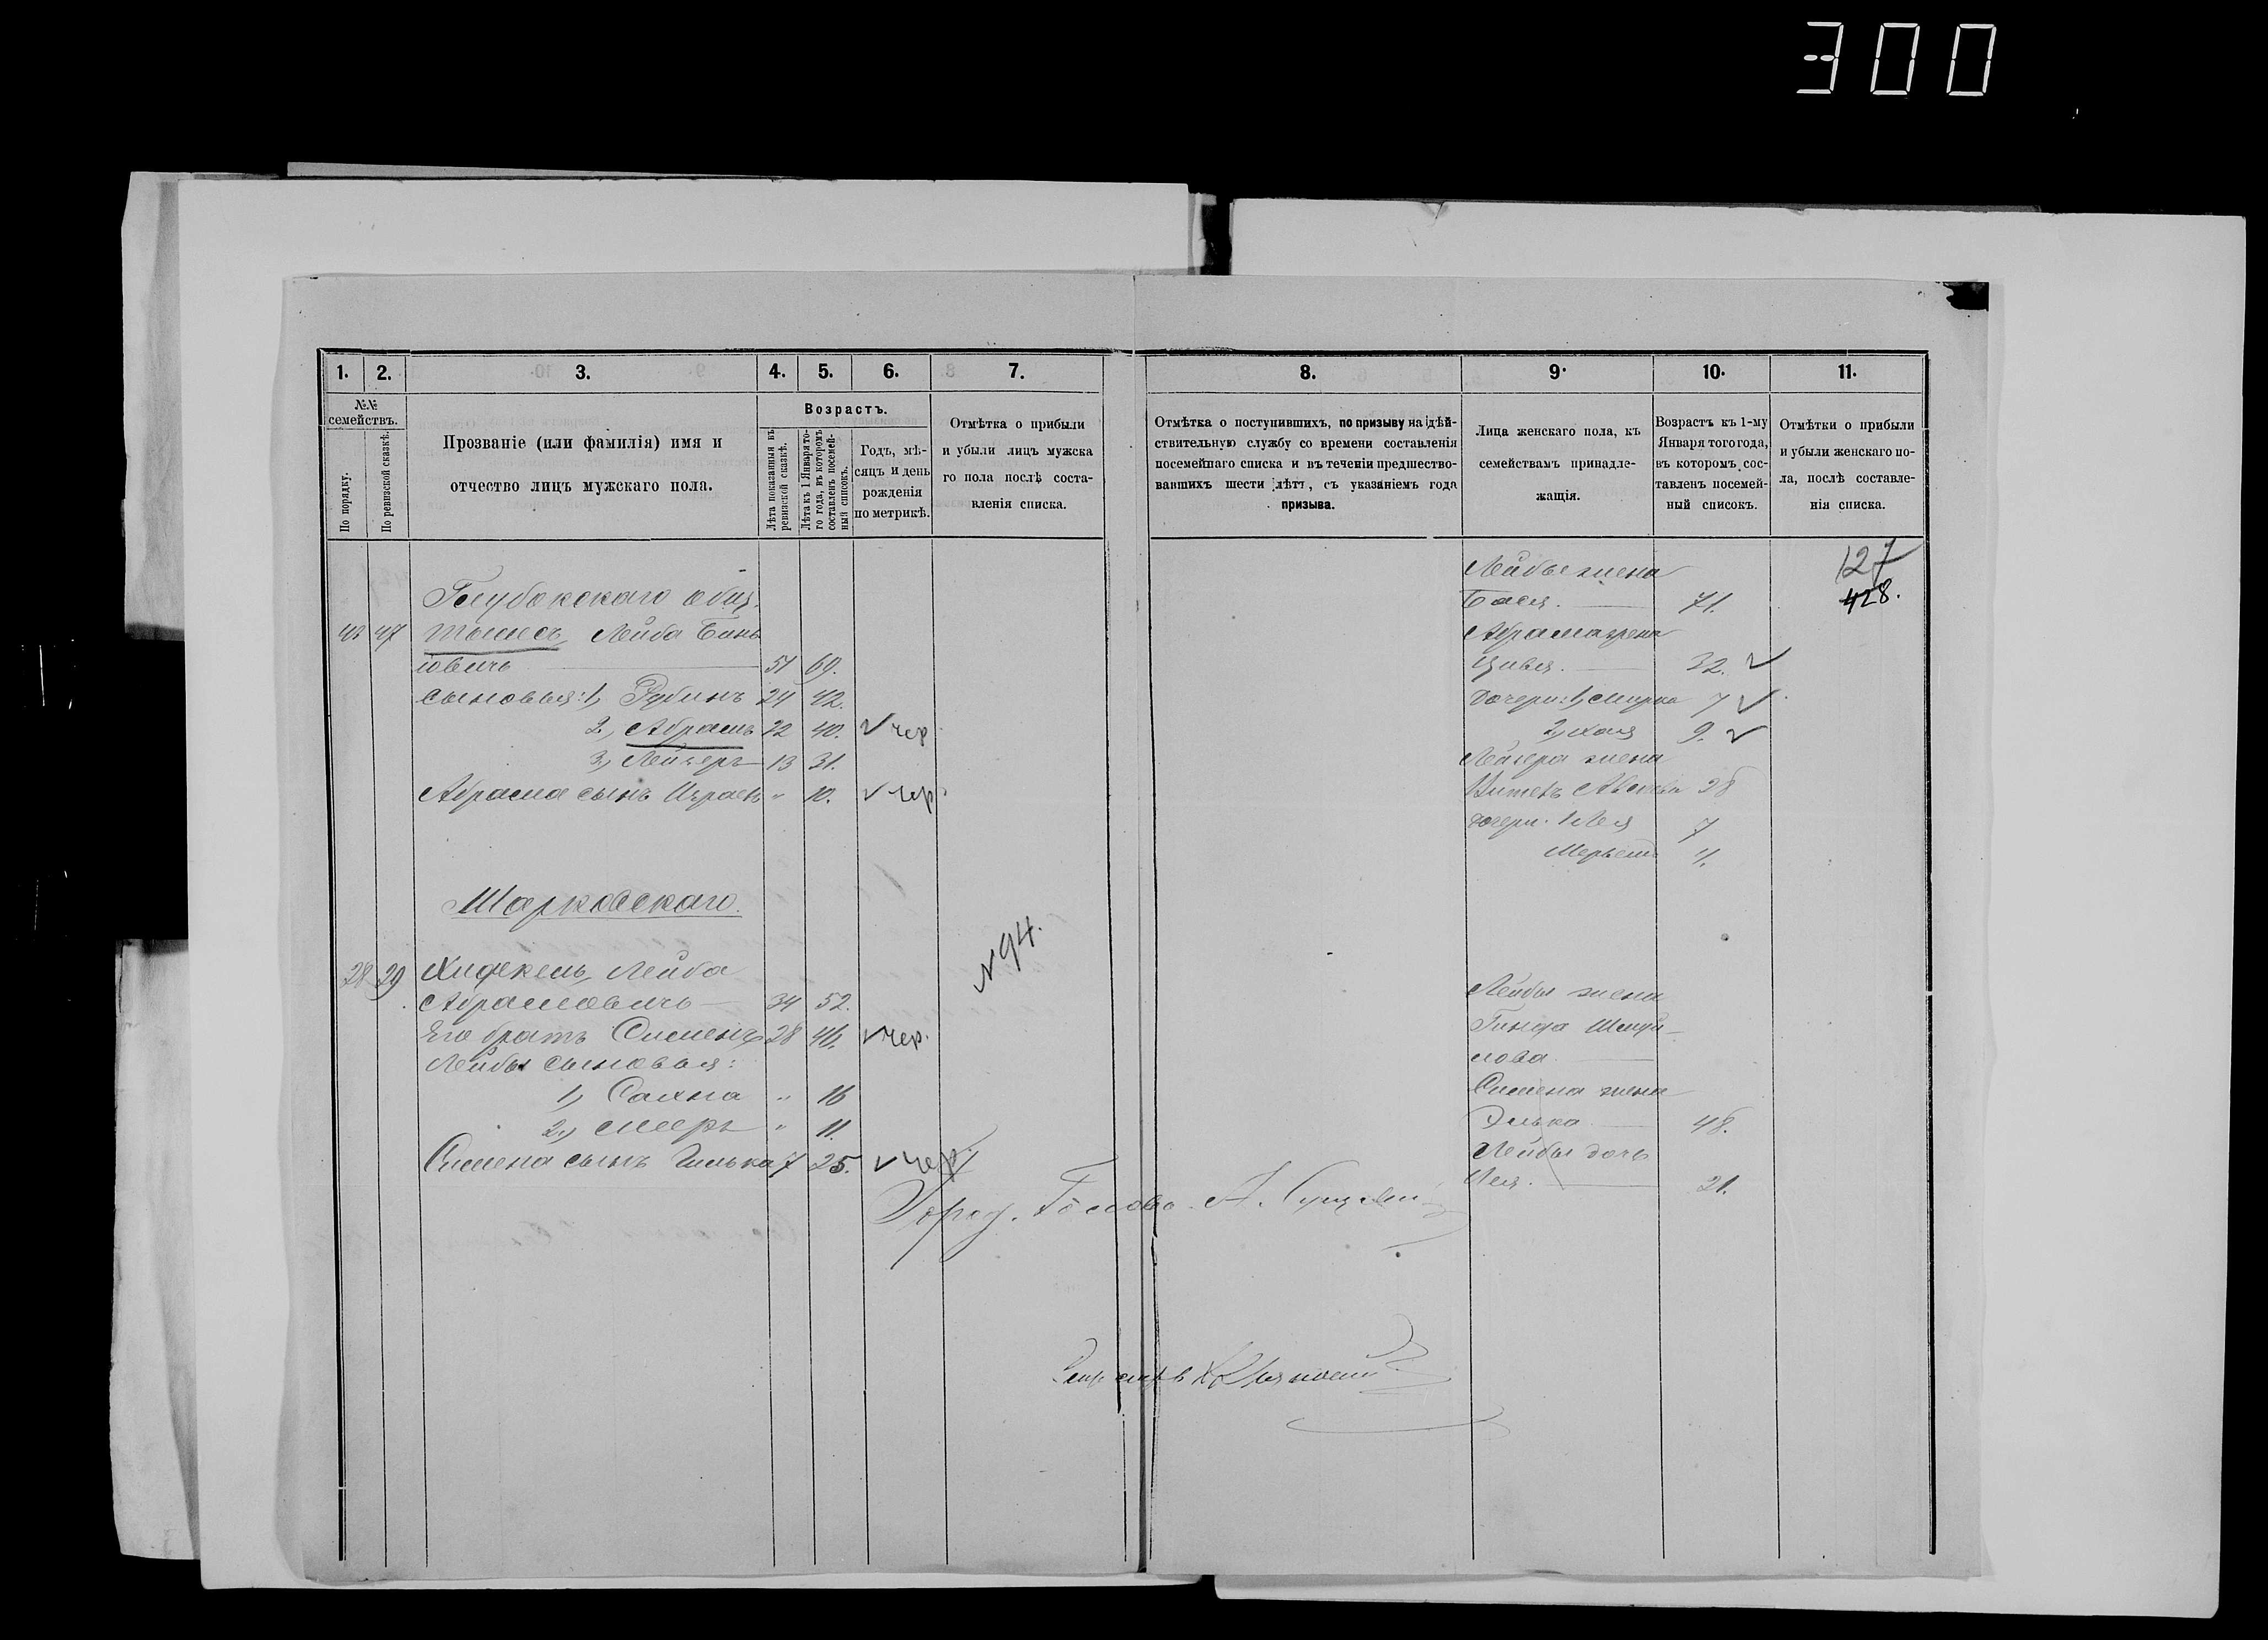 300
1. 2. 3. 4. 5. 6. 7.
№№ семействъ.
По порядку.
По ревизской сказкѣ.
Прозваніе (или фамилія) имя и
отчество лицъ мужскаго пола.
Возрастъ.
Лѣта показанныя въ
ревизской сказкѣ.
Лѣта къ 1 Января то-
го года, въ которомъ
составленъ посемей-
ный списокъ.
Годъ, мѣ-
сяцъ и день
рожденія
по метрикѣ.
Отмѣтка о прибыли
и убыли лицъ мужска
го пола послѣ соста-
вленія списка.
Глубокскаго общ.
47 Лейба Бинь
іовичъ 51 69.
сыновья: 1, Рубинъ 24 42.
2, Абрамъ 22 40. чер
3, Лейзеръ 13 31.
Абрама сынъ Израель " 10. чер
Шарковскаго.
N 94.
28 29 Хидекель, Лейба
Абрамовичъ 34 52.
Его братъ Сименъ 28 46. чер.
Лейбы сыновья:
1, Сахна " 16
2, Мееръ " 11.
Симена сынъ Гилька 7 25. чер.
Город. Голова А.
8. 9. 10. 11.
Отмѣтка о поступившихъ, по призыву на дѣй-
ствительную службу со времени составленія
посемейнаго списка и въ теченіи предшество-
вавшихъ шести лѣтъ, съ указаніемъ года
призыва.
Лица женскаго пола, къ
семействамъ принадле-
жащія.
Возрастъ къ 1-му
Января того года,
въ которомъ сос-
тавленъ посемей-
ный списокъ.
Отмѣтки о прибыли
и убыли женскаго по-
ла, послѣ составле-
нія списка.
127
428.
Лейбы жена
Бася. 71.
Абрама жена
Цивья. 32.
дочери: 1, Мирка 7
2, Хая 9.
Лейзера жена
28
дочери: 1 Лея 7
Мерьемъ 4.
Лейбы жена
Гинда
лова
Симена жена
Элька 48.
Лейбы дочь
Лея. 21.